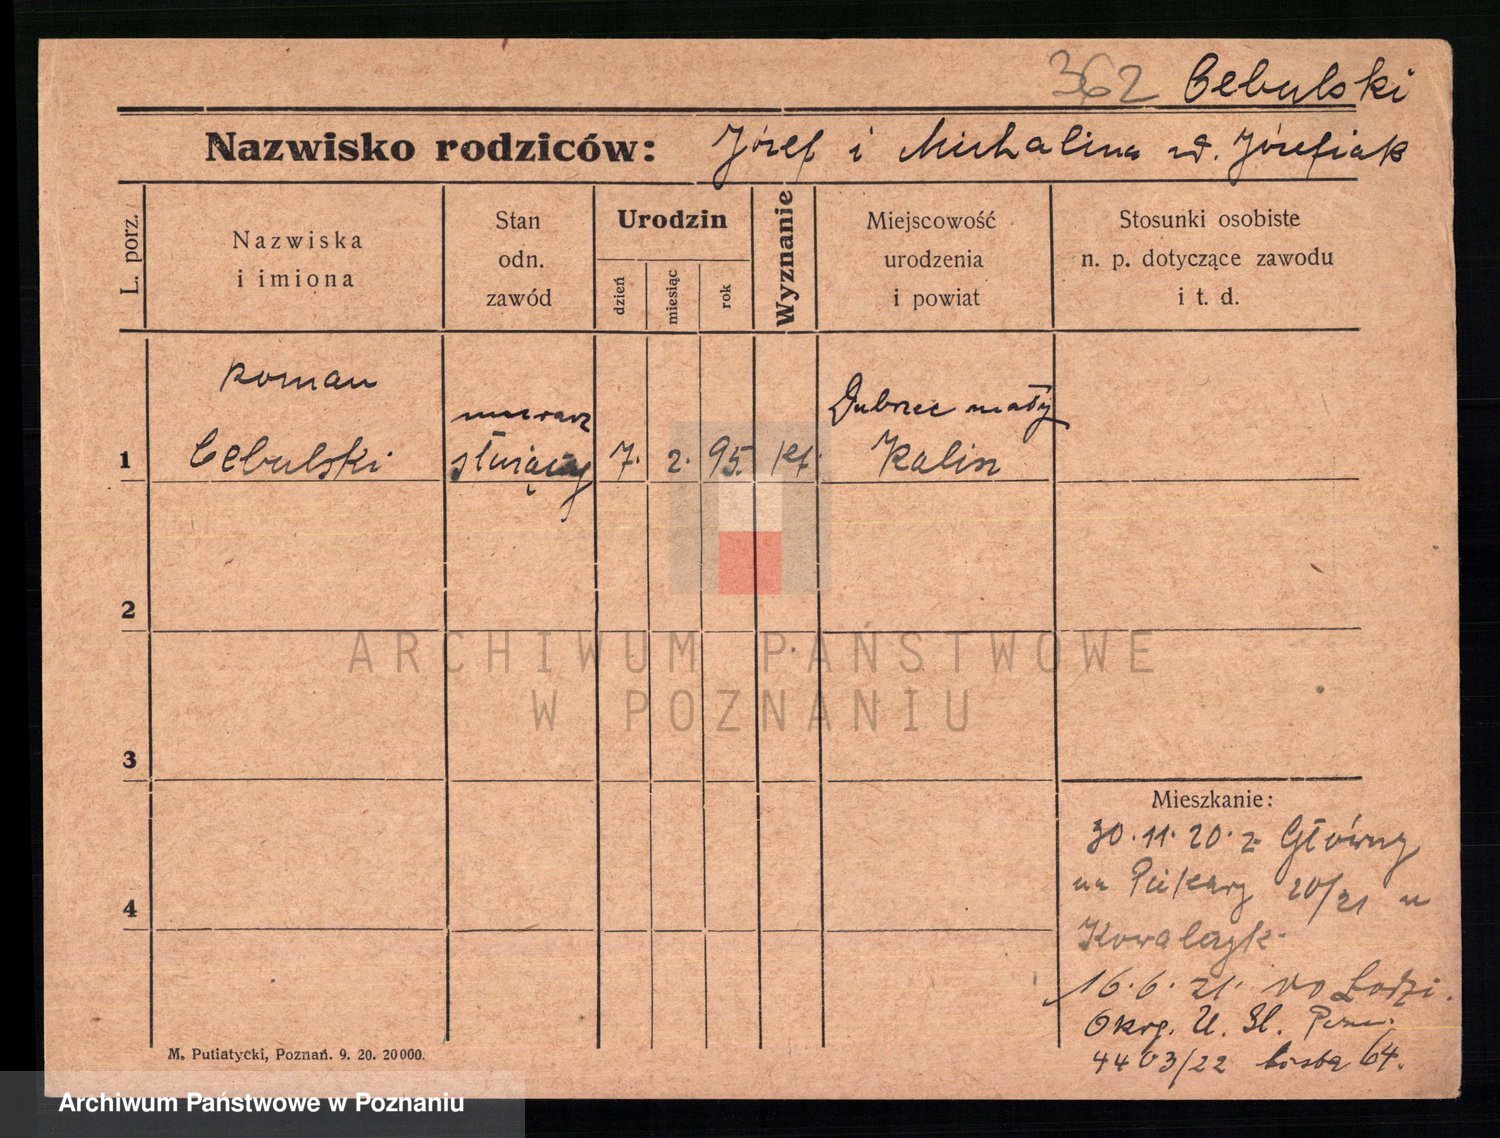 362 Cebulski
Nazwisko rodziców: Józef i Michalina zd. Józefiak
L. porz.
Nazwiska
i imiona
Stan
odn.
zawód
Urodzin
dzień
miesiąc
rok
Wyznanie
Miejscowość
urodzenia
i powiat
Stosunki osobiste
n. p. dotyczące zawodu
i t. d.
Roman
murarz
Dubrzec mały
1 Cebulski służący 7. 2. 95. kt. Kalisz
2
3
4
Mieszkanie:
30.11.20 z Główny
na Piekary 20/21 u
Kowalczyk.
16.6.21. do Łodzi.
Okrg. U. Sl. Pozn.
4403/22 liczba 64.
M. Putiatycki, Poznań. 9. 20. 20000.
ARCHIWUM PAŃSTWOWE
W POZNANIU
Archiwum Państwowe w Poznaniu